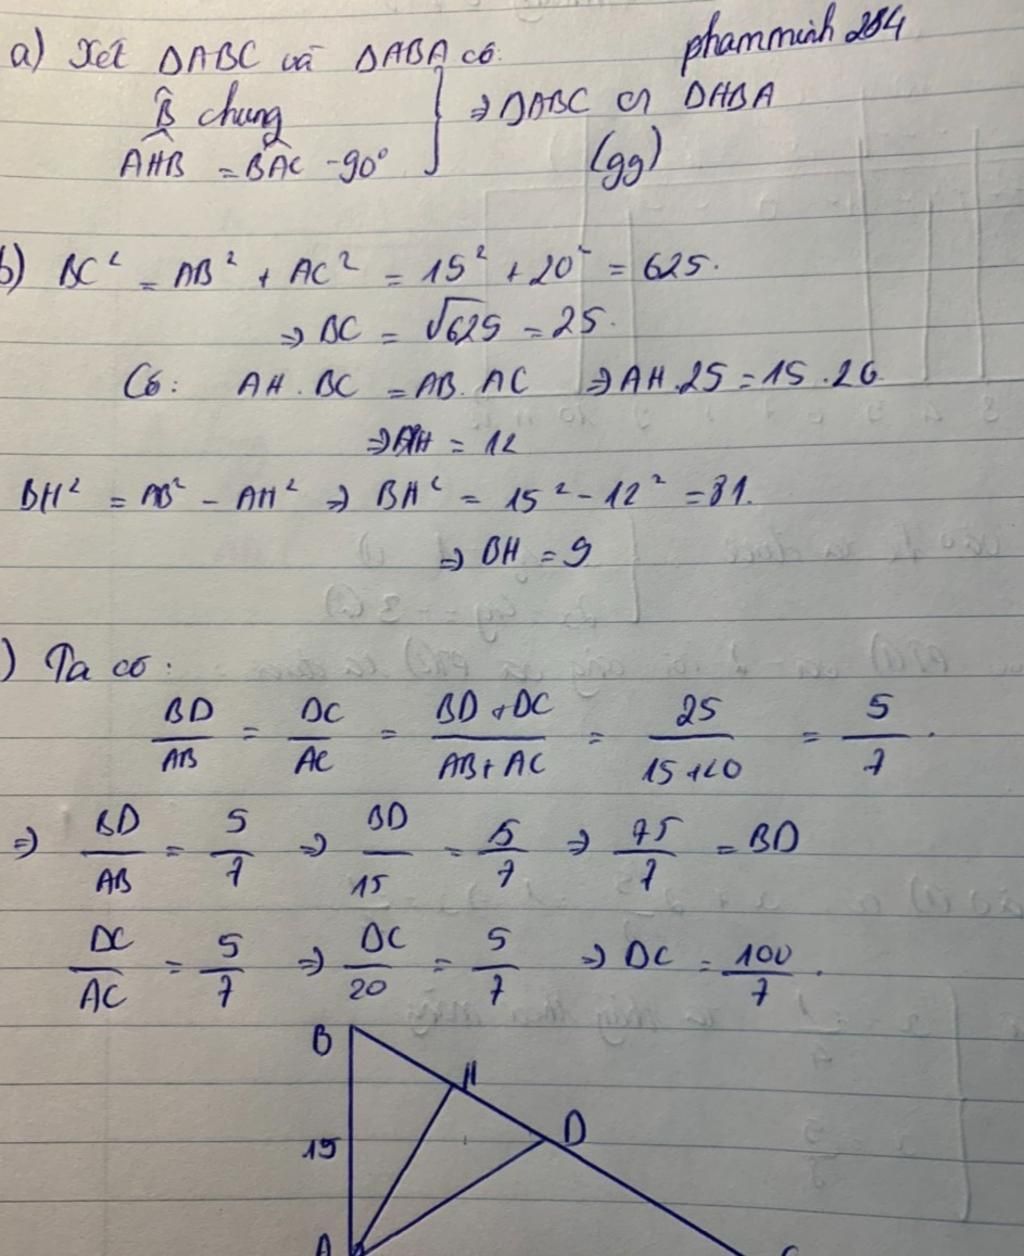 a) Xét ΔABC và ΔABA có: phamminh 284
B̂ chung } ⇒ ΔABC ∽ ΔHBA
AHB = BAC = 90° (gg)
b) BC² = AB² + AC² = 15² + 20² = 625.
⇒ BC = √625 = 25.
Có: AH . BC = AB . AC ⇒ AH . 25 = 15 . 20
⇒ AH = 12
BH² = AB² - AH² ⇒ BH² = 15² - 12² = 81.
⇒ BH = 9
) Ta có:
BD/AB = DC/AC = BD + DC/AB + AC = 25/15 + 20 = 5/7.
⇒ BD/AB = 5/7 ⇒ BD/15 = 5/7 ⇒ 75/7 = BD
DC/AC = 5/7 ⇒ DC/20 = 5/7 ⇒ DC = 100/7.
B
H
D
15
A C